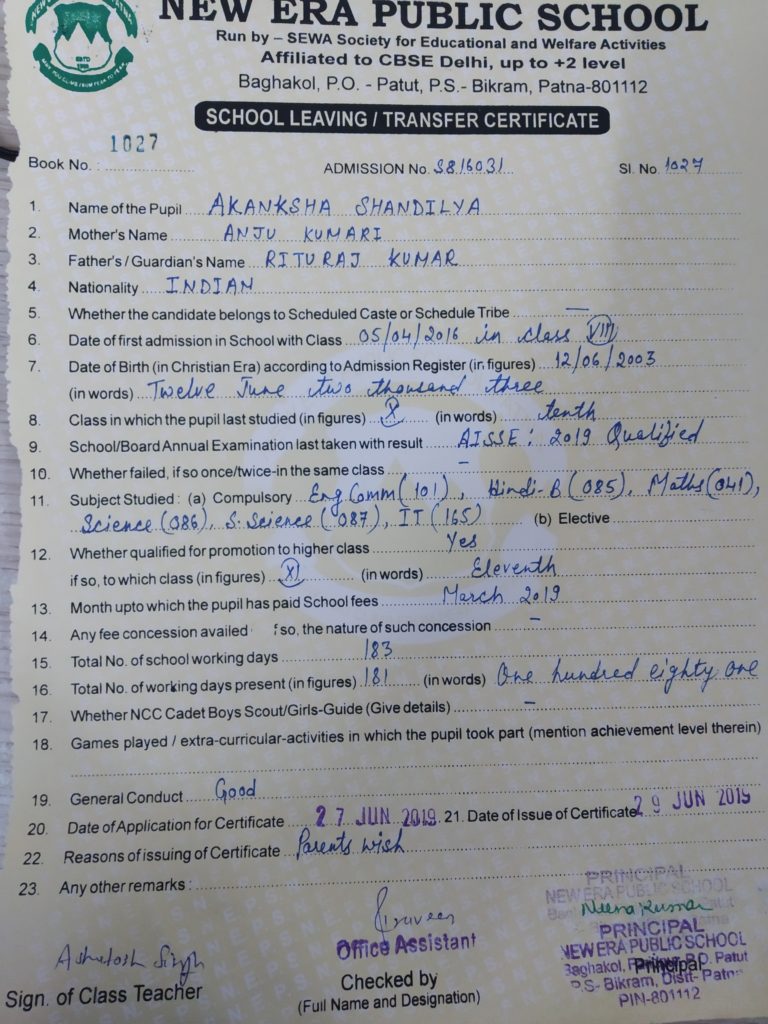 NEW ERA PUBLIC SCHOOL
Run by – SEWA Society for Educational and Welfare Activities
Affiliated to CBSE Delhi, up to +2 level
Baghakol, P.O. - Patut, P.S.- Bikram, Patna-801112
SCHOOL LEAVING / TRANSFER CERTIFICATE
Book No. : 1027 ADMISSION No. S816031 Sl. No. 1027
1. Name of the Pupil AKANKSHA SHANDILYA
2. Mother's Name ANJU KUMARI
3. Father's / Guardian's Name RITURAJ KUMAR
4. Nationality INDIAN
5. Whether the candidate belongs to Scheduled Caste or Schedule Tribe —
6. Date of first admission in School with Class 05/04/2016 in class VIII
7. Date of Birth (in Christian Era) according to Admission Register (in figures) 12/06/2003
(in words) Twelve June two thousand three
8. Class in which the pupil last studied (in figures) X (in words) tenth
9. School/Board Annual Examination last taken with result AISSE: 2019 Qualified
10. Whether failed, if so once/twice-in the same class –
11. Subject Studied : (a) Compulsory Eng Comm (101), Hindi-B (085), Maths (041),
Science (086), S. Science (087), IT (165) (b) Elective
12. Whether qualified for promotion to higher class Yes
if so, to which class (in figures) XI (in words) Eleventh
13. Month upto which the pupil has paid School fees March 2019
14. Any fee concession availed if so, the nature of such concession –
15. Total No. of school working days 183
16. Total No. of working days present (in figures) 181 (in words) One hundred eighty one
17. Whether NCC Cadet Boys Scout/Girls-Guide (Give details) –
18. Games played / extra-curricular-activities in which the pupil took part (mention achievement level therein)
19. General Conduct Good
20. Date of Application for Certificate 27 JUN 2019. 21. Date of Issue of Certificate 29 JUN 2019
22. Reasons of issuing of Certificate Parents wish
23. Any other remarks :
PRINCIPAL
NEW ERA PUBLIC SCHOOL
Praveen
Neena Kumar
Ashutosh Singh
Office Assistant
PRINCIPAL
NEW ERA PUBLIC SCHOOL
Sign. of Class Teacher
Checked by
(Full Name and Designation)
Principal
Baghakol, P.O. Patut
P.S- Bikram, Distt- Patna
PIN-801112